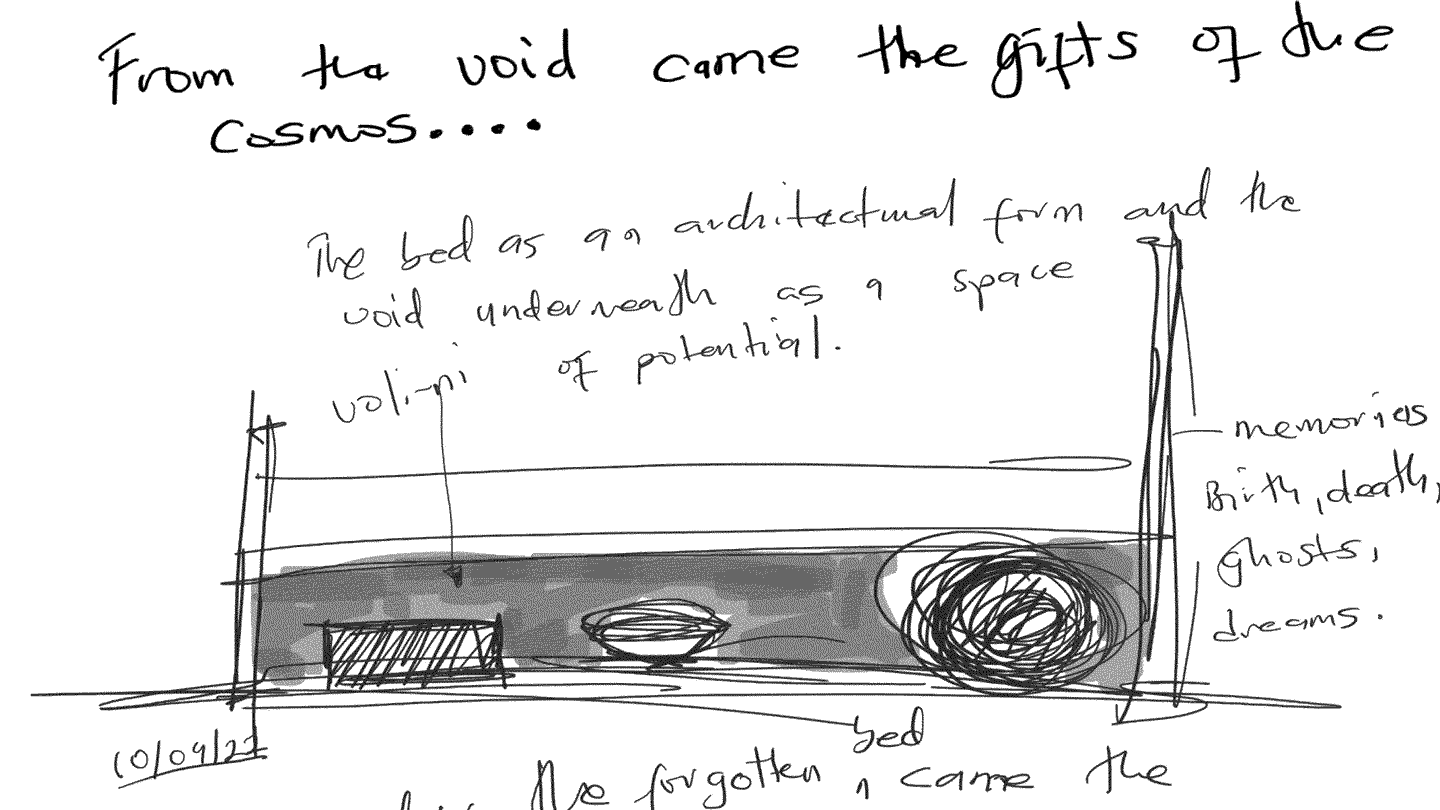 From the void came the gifts of the
cosmos....
The bed as an architectural form and the
void underneath as a space
of potential.
voli-ni
memories
Birth, death,
ghosts,
dreams.
bed
10/09/22
the forgotten, came the